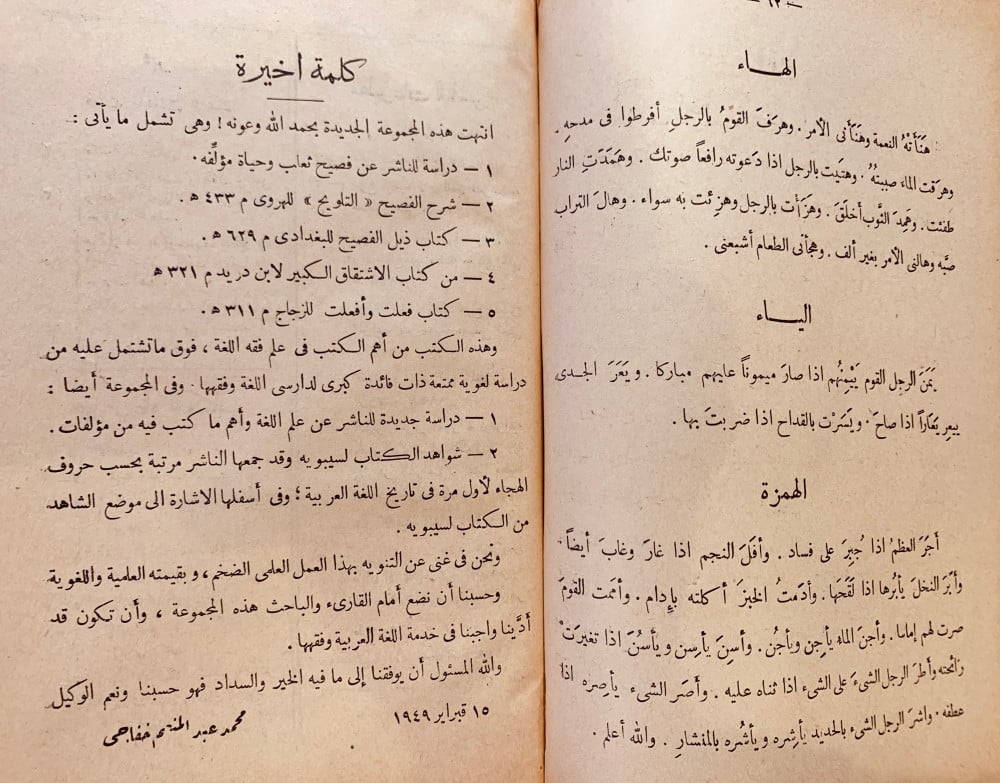 — ١٣ —
الهاء
هَنَأَتْهُ النعمة وهَنَأَنى الأمر . وهرَفَ القوْمُ بالرجلِ أفرطوا فى مدحِهِ .
وهرَقت الماءَ صببتهُ . وهتَيت بالرجل اذا دَعوته رافعاً صوتك . وهَمَدَتِ النار
طفئت . وهَمِدَ الثَّوب أخلَقَ . وهزَأت بالرجل وهزِئت به سواء . وهالَ التراب
صبَّه وهالنى الأمر بغير ألف . وهجأنى الطعام أشبعنى .
الياء
يَمَنَ الرجل القوم يَيْمِنُهُم اذا صارَ ميموناً عليهم مباركا . ويَعَرَ الجدى
ييعِر يَعَاراً اذا صاحَ . ويَسَرْت بالقداح اذا ضربتَ بها .
الهمزة
أجَرَ العظمُ اذا جُبِرَ على فساد . وأفَلَ النجم اذا غارَ وغابَ أيضاً
وأبَرَ النخلَ يأبُرها اذا لَقَّحَها . وأدَمتُ الخبزَ أكلته بإدام . وأممت القوْمَ
صرت لهم إماما . وأجنَ الماء يأجِن ويأجُن . وأسِنَ يأسِن ويأسُنَ اذا تغيرَتْ
رائحته وأطرَ الرجل الشىءَ على الشىء اذا ثناه عليه . وأصَر الشىء يأصِره اذا
عطفه . واشرَ الرجل الشىء بالحديد يأشِره ويأشُره بالمنشارِ . والله أعلم .
كلمة اخيرة
انتهت هذه المجموعة الجديدة بحمد الله وعونه ! وهى تشمل ما يأتى :
١ — دراسة للناشر عن فصيح ثعلب وحياة مؤلِّفه .
٢ — شرح الفصيح « التلويح » للهروى م ٤٣٣ ھ .
٣ — كتاب ذيل الفصيح للبغدادى م ٦٢٩ ھ .
٤ — من كتاب الاشتقاق الكبير لابن دريد م ٣٢١ ھ
٥ — كتاب فعلت وأفعلت للزجاج م ٣١١ ھ .
وهذه الكتب من أهم الكتب فى علم فقه اللغة ، فوق ماتشتمل عليه من
دراسة لغوية ممتعة ذات فائدة كبرى لدارسى اللغة وفقهها . وفى المجموعة أيضا :
١ — دراسة جديدة للناشر عن علم اللغة وأهم ما كتب فيه من مؤلفات .
٢ — شواهد الكتاب لسيبويه وقد جمعها الناشر مرتبة بحسب حروف
الهجاء لأول مرة فى تاريخ اللغة العربية ؛ وفى أسفلها الاشارة الى موضع الشاهد
من الكتاب لسيبويه .
ونحن فى غنى عن التنويه بهذا العمل العلمى الضخم ، وبقيمته العلمية واللغوية
وحسبنا أن نضع أمام القارىء والباحث هذه المجموعة ، وأن تكون قد
أدَّينا واجبنا فى خدمة اللغة العربية وفقهها .
والله المسئول أن يوفقنا إلى ما فيه الخير والسداد فهو حسبنا ونعم الوكيل
١٥ فبراير ١٩٤٩
محمد عبد المنعم خفاجى